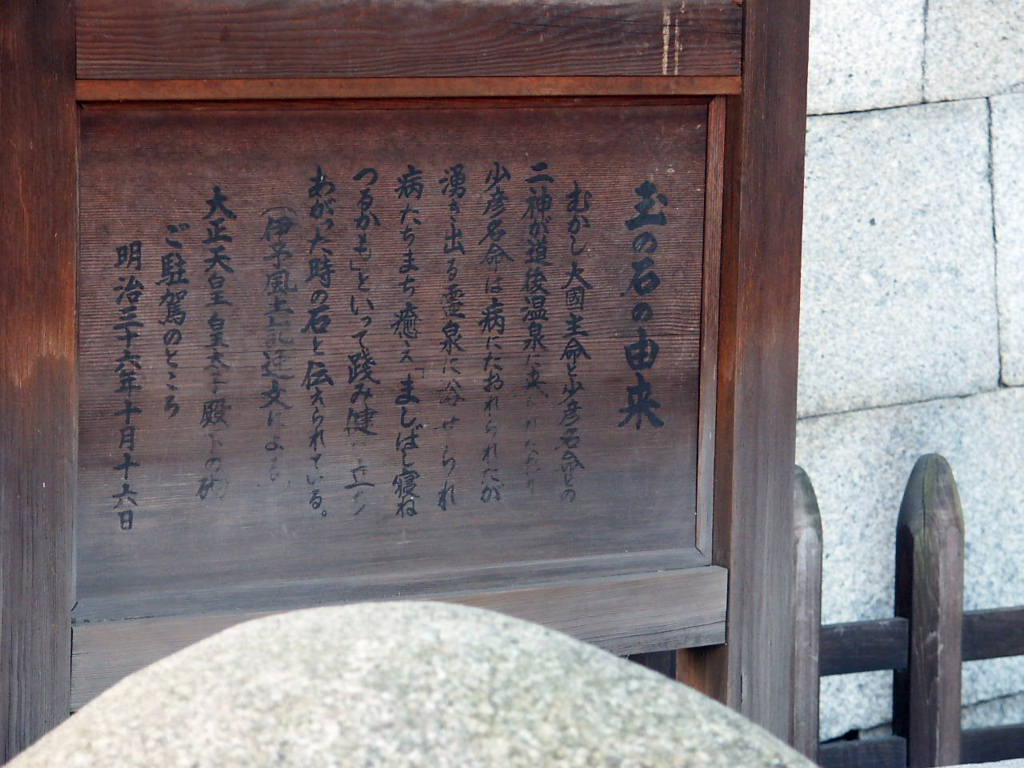 玉の石の由来
むかし大國主命と少彦名命との
二神が道後温泉に来られたおり
少彦名命は病にたおれられたが
湧き出る霊泉に浴せられ
病たちまち癒え「ましばし寝ね
つるかも」といって踐み健に立ち
あがった時の石と伝えられている。
(伊予風土記逸文による)
大正天皇皇太子殿下の砌
ご駐駕のところ
明治三十六年十月十六日